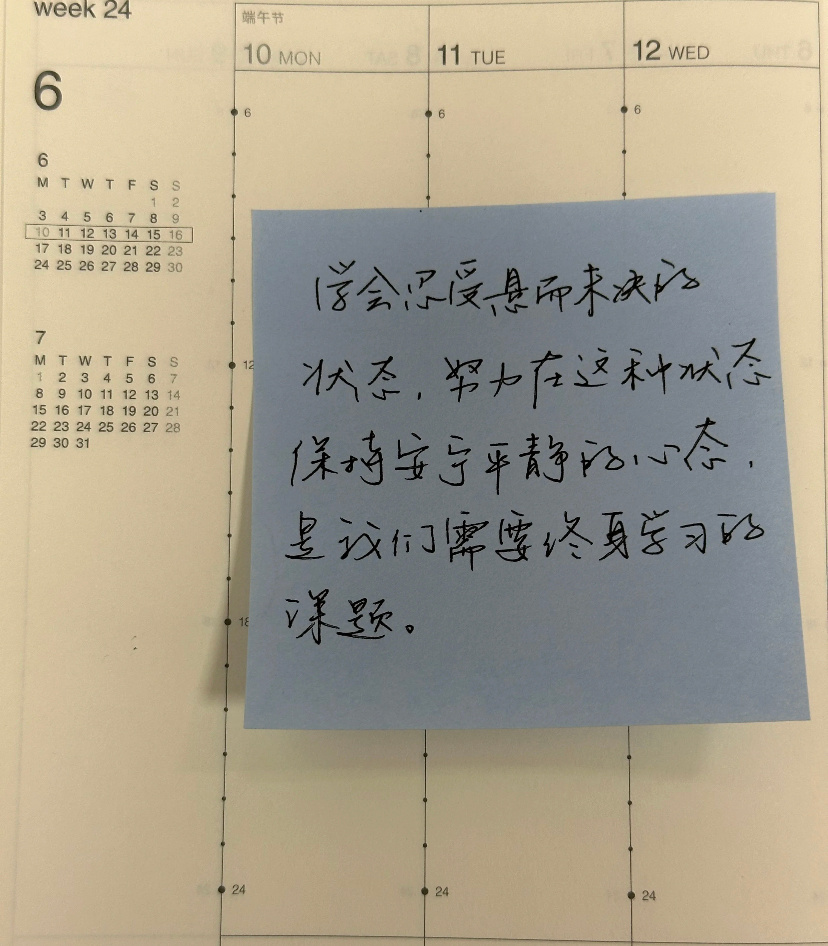 week 24
6
6
M T W T F S S
1 2
3 4 5 6 7 8 9
10 11 12 13 14 15 16
17 18 19 20 21 22 23
24 25 26 27 28 29 30
7
M T W T F S S
1 2 3 4 5 6 7
8 9 10 11 12 13 14
15 16 17 18 19 20 21
22 23 24 25 26 27 28
29 30 31
端午节
10 MON 11 TUE 12 WED
6 6 6
12
18
24 24 24
学会忍受悬而未决的
状态，努力在这种状态
保持安宁平静的心态，
是我们需要终身学习的
课题。